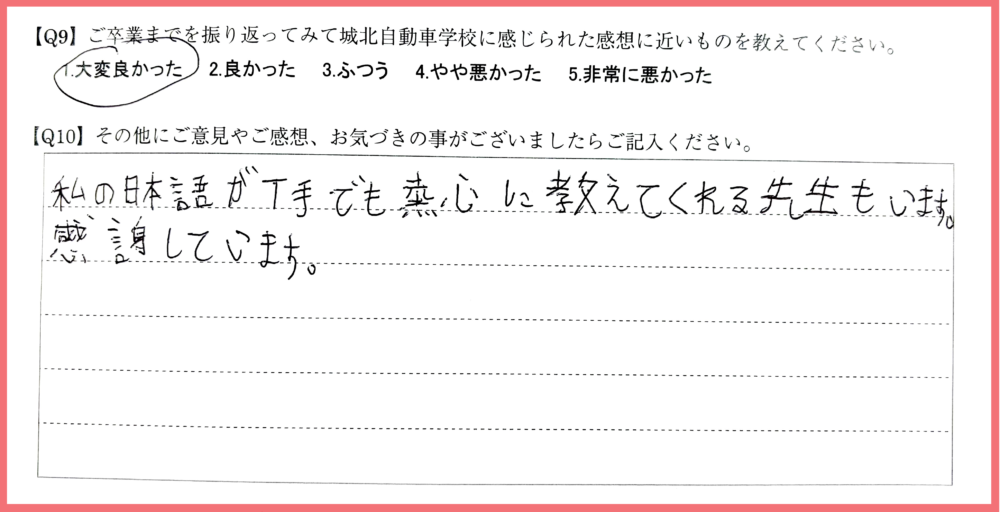 【Q9】ご卒業までを振り返ってみて城北自動車学校に感じられた感想に近いものを教えてください。
1.大変良かった 2.良かった 3.ふつう 4.やや悪かった 5.非常に悪かった
【Q10】その他にご意見やご感想、お気づきの事がございましたらご記入ください。
私の日本語が下手でも熱心に教えてくれる先生もいます。
感謝しています。